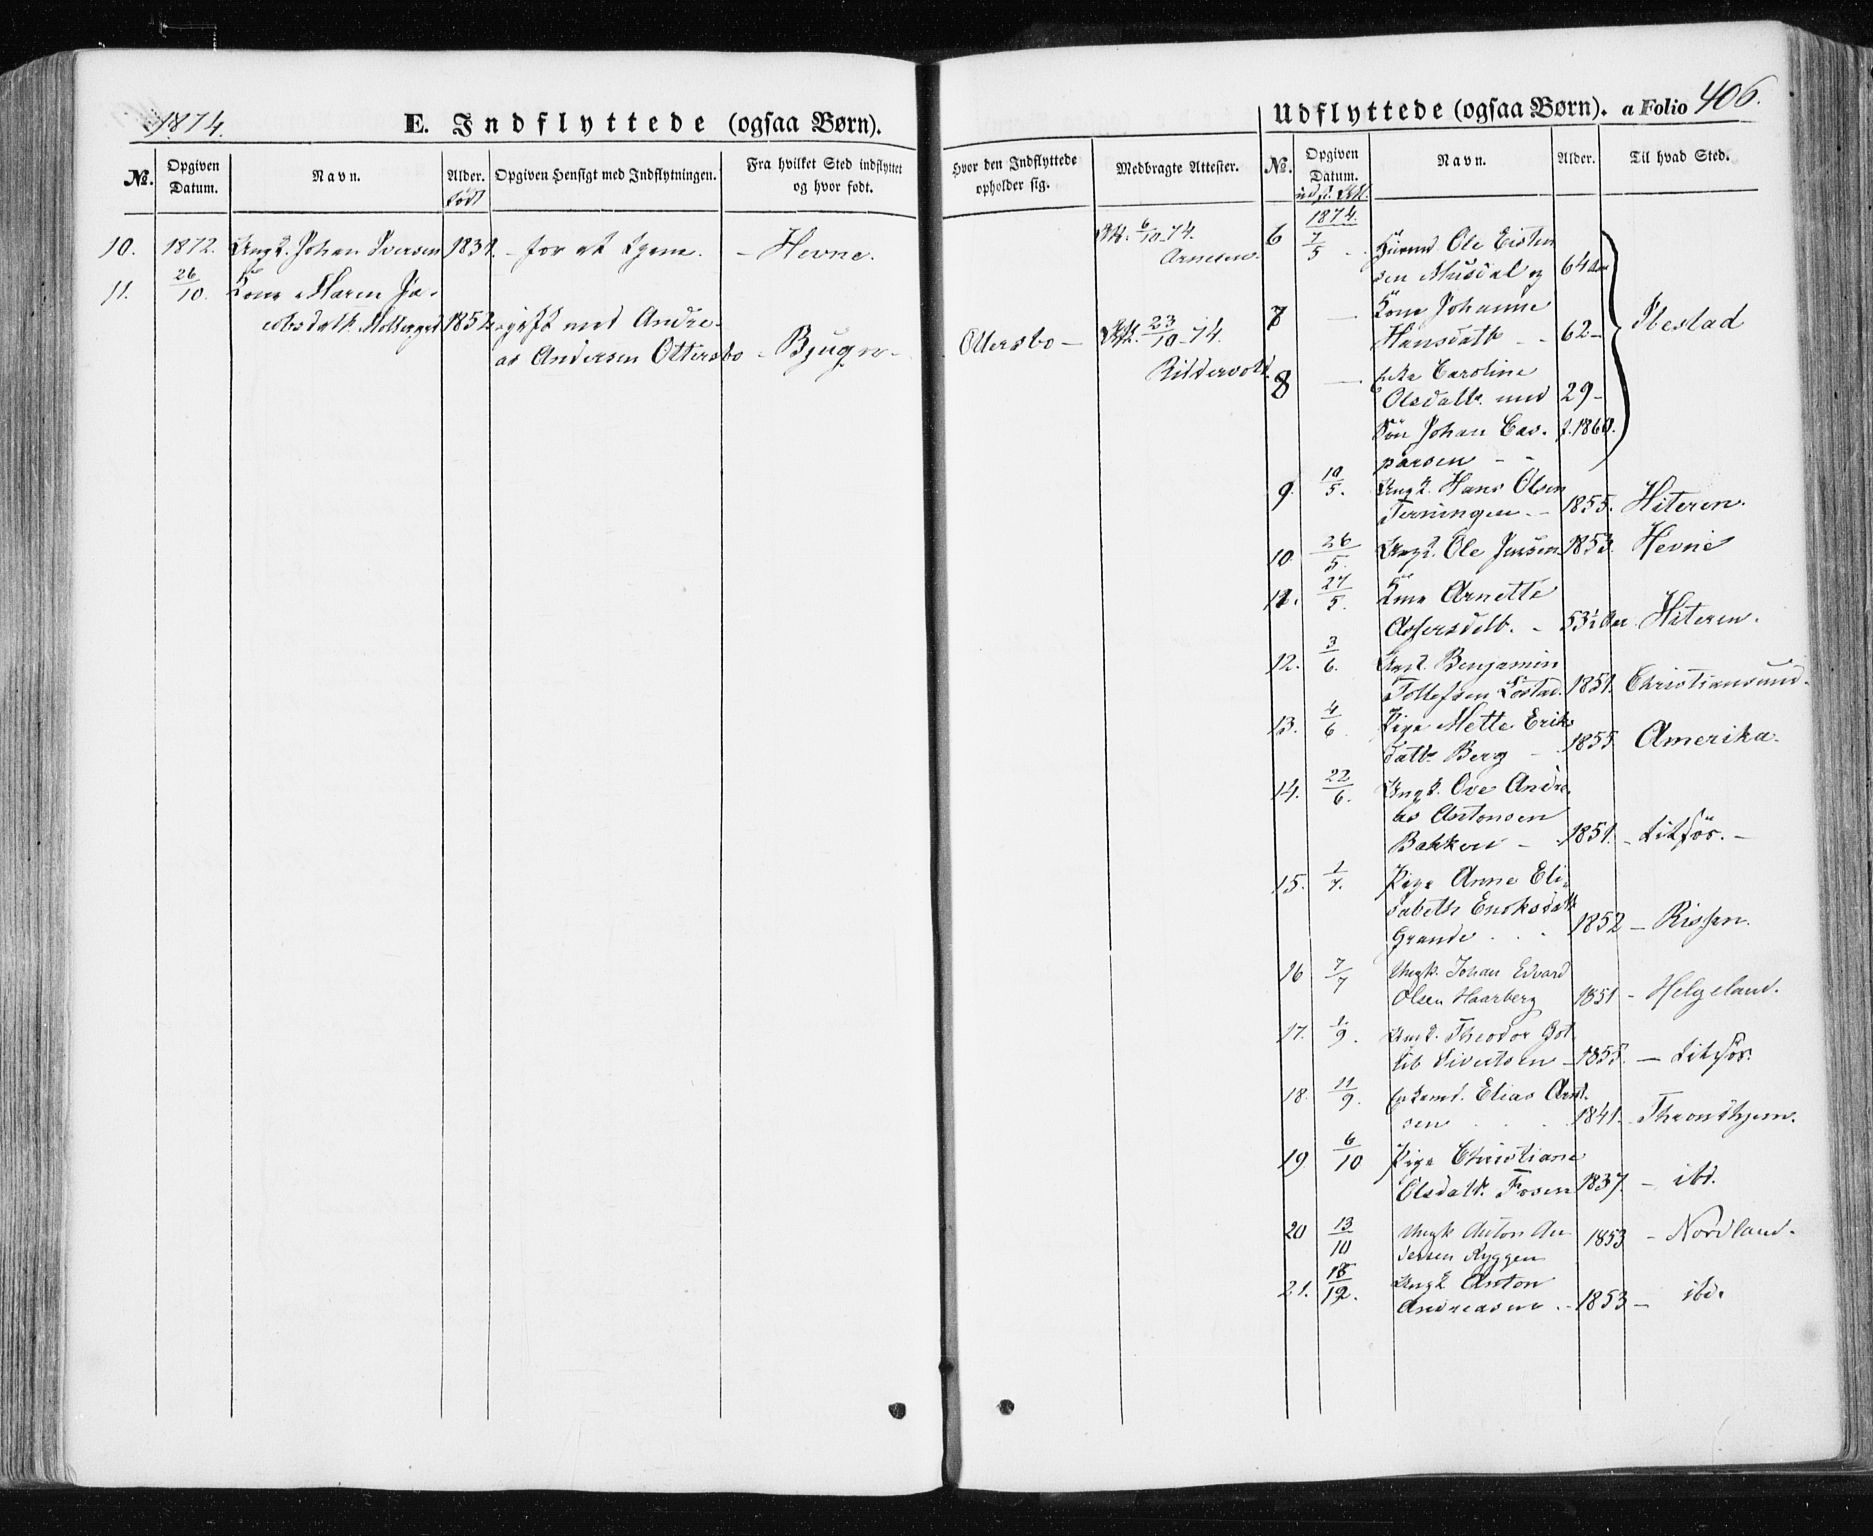 1874.
E. Indflyttede (ogsaa Børn).
No.
Opgiven Datum.
Navn.
Alder.
født
Opgiven Hensigt med Indflytningen.
Fra hvilket Sted indflyttet
og hvor født.
Hvor den Indflyttede
opholder sig.
Medbragte Attester.
10. 1872. Ungk. Johan Iversen 1831. - for at tjene. - Hevne. 6/10 74.
Arnesen.
11. 26/10. Kone Maren Ja-
cobsdatt. 1852 - gift med Andre-
as Andersen Ottersbo - Bjugn - Ottersbo - 23/10 74.
Riddervold.
Udflyttede (ogsaa Børn). a Folio 406.
No.
Opgiven
Datum.
Navn.
Alder.
Til hvad Sted.
1874.
6 7/5 Ole Eisten
sen Musdal og 64 Aar
7 - Kone Johanne
Hansdatt - - 62 - Ibestad
8 - Caroline
Olsdatt. med 29 -
Søn Johan Cas- f. 1860.
parsen - -
9. 10/5. Ungk. Hans Olsen
Terningen. - 1855. Hiteren.
10. 26/5. Ungk. Ole Jensen 1853. Hevne
11. 27/5. Kone Arnette
Assersdtt. - 53½ Aar Hiteren.
12. 3/6. Ungk. Benjamin
Tollefsen 1851. Christiansund.
13. 4/6. Pige Mette Eriks
datt. Berg - 1855 Amerika.
14. 22/6. Ungk. Ove Andre
as Antonsen
Bakken - 1851. - Ditför. -
15. 1/7. Pige Anne Eli-
sabeth Enoksdatt
Grande . . . 1852 - Rissen.
16 7/7 Ungk. Johan Edvard
Olsen Haarberg 1851 - Helgeland.
17. 1/9. Ungk. Theodor Got
lib Sivertsen - 1855. - Ditför.
18. 11/9. Elias Arnt-
sen . . . 1841. Throndhjem.
19 6/10 Pige Christiane
Olsdatt. Fosen 1837. - ibd.
20 13/10 Ungk Anton An
dersen Ryggen 1853 - Nordland.
21. 18/12. Ungk Anton
Andreasen . - 1853 - ibd.